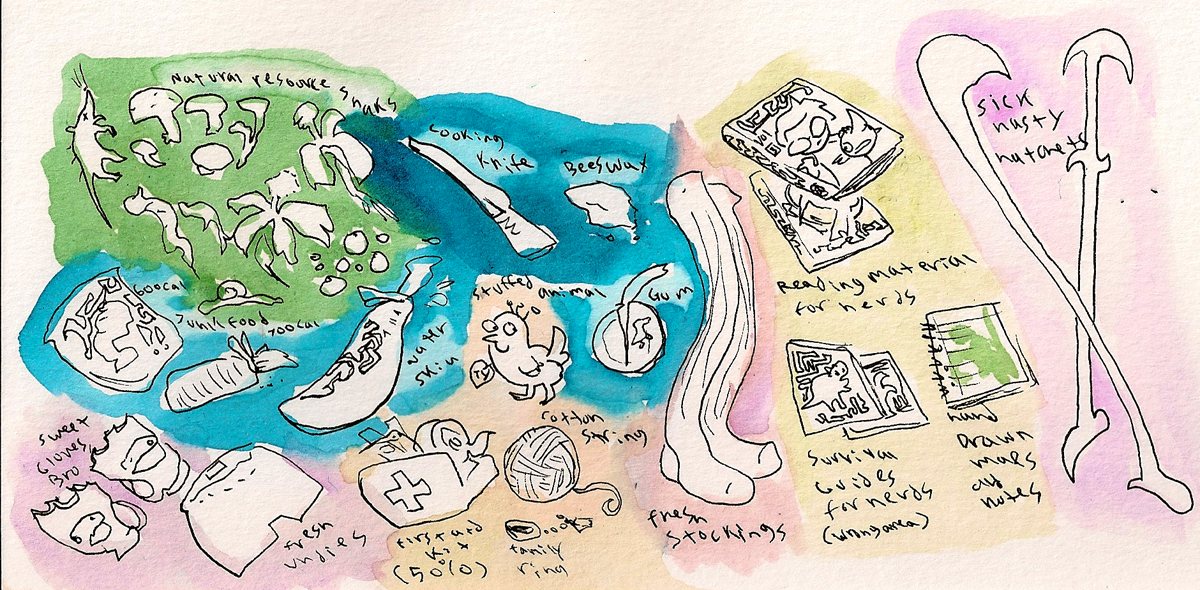 Natural resource snaks
cooking
knife
Beeswax
600cal
Junk food 700cal
water
skin
stuffed animal
Gum
sick
nasty
hatchets
Reading material
for nerds
sweet
Gloves
Bro
fresh
undies
first aid
kit
(50%)
cotton
string
family
ring
fresh
stockings
survival
Guides
for nerds
hand
Drawn
maps
notes